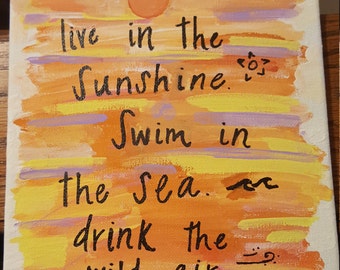 live in the
sunshine.
Swim in
the sea.
drink the
wild air